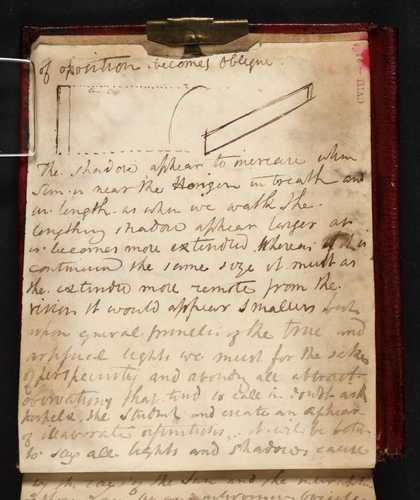 of oposition becomes Oblique.
The shadow appear to increase when
Sun is near the Horizon in breath and
in length as when we walk the
lengthing shadow appear larger as
it becomes more extended Whereas if it
continued the same size it must as
the extended more remote from the
vision it would appear smaller but
upon general principles of the true and
artificial lights we must for the sake
of perspecuity and avoid all abstract
observations that tend to call in doubt and
the student and create an appear
of elaborate definitions it will be
to say all lights and shadows cause
the Sun and the